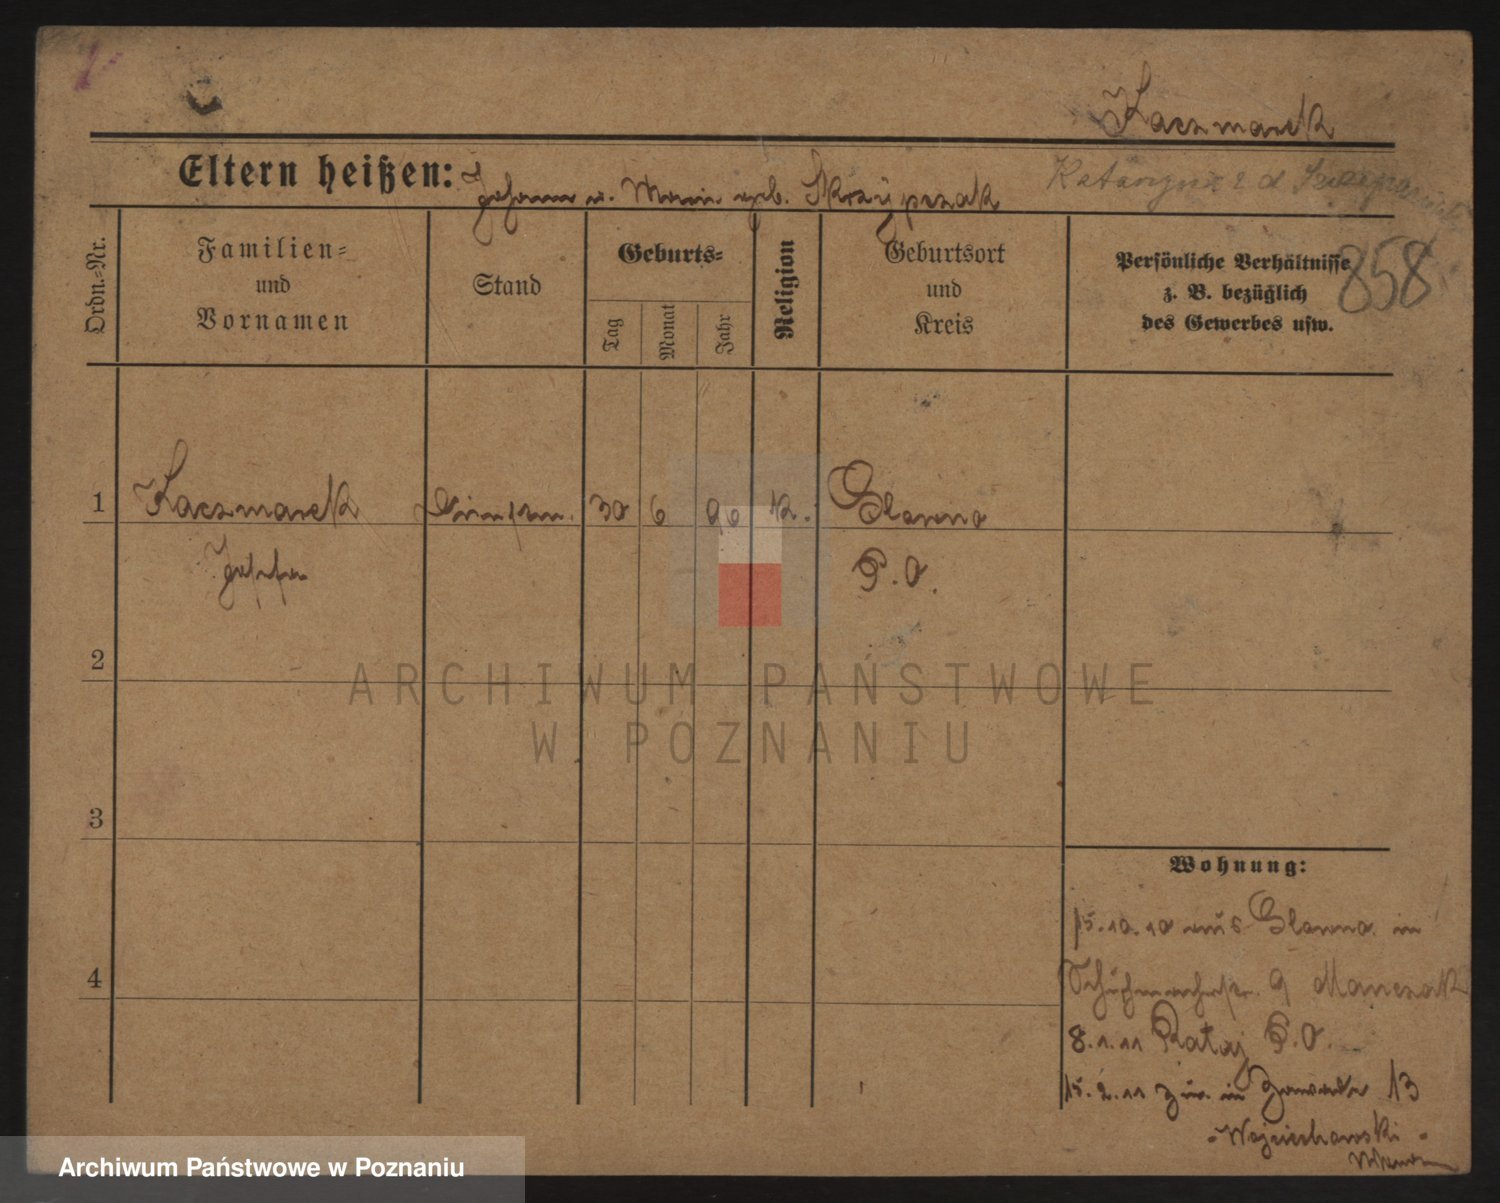 Kaczmarek
Eltern heißen: Johann u. Marie geb. Skrzypczak
Katarzyna z d
858
Ordn.-Nr.
Familien-
und
Vornamen
Stand
Geburts-
Tag
Monat
Jahr
Religion
Geburtsort
und
Kreis
Persönliche Verhältnisse
z. B. bezüglich
des Gewerbes usw.
1 Kaczmarek 30 6 96 K. Glowno
Josefa P. O.
2
3
4
Wohnung:
15.10.10 aus Glowno in
Schuhmacherstr. 9 Manczak
8.1.11 Rataj P.O.
15.2.11 zur. in Zawade 13
Wojciechowski
ARCHIWUM PAŃSTWOWE
W POZNANIU
Archiwum Państwowe w Poznaniu